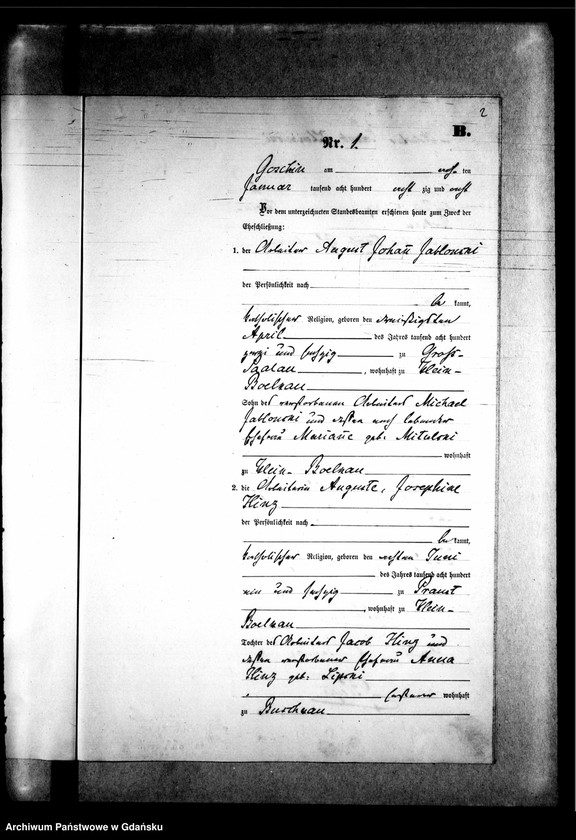 2
B.
Nr. 1.
Goschin am achten
Januar tausend acht hundert acht zig und acht
Vor dem unterzeichneten Standesbeamten erschienen heute zum Zweck der
Eheschließung:
1. der Arbeiter August Johann Jablonski
der Persönlichkeit nach
be kannt,
katholischer Religion, geboren den dreißigsten
April des Jahres tausend acht hundert
zwei und sechzig zu Groß-
Saalau, wohnhaft zu Klein-
Boelkau
Sohn des verstorbenen Arbeiters Michael
Jablonski und dessen noch lebender
Ehefrau Marianne geb. Mitulski
wohnhaft
zu Klein-Boelkau
2. die Arbeiterin Auguste, Josephine
Hinz
der Persönlichkeit nach
be kannt,
katholischer Religion, geboren den achten Juni
des Jahres tausend acht hundert
ein und sechzig zu Praust
, wohnhaft zu Klein-
Boelkau
Tochter des Arbeiters Jacob Hinz und
dessen verstorbener Ehefrau Anna
Hinz geb. Lipski
ersterer wohnhaft
zu Buschkau
Archiwum Państwowe w Gdańsku